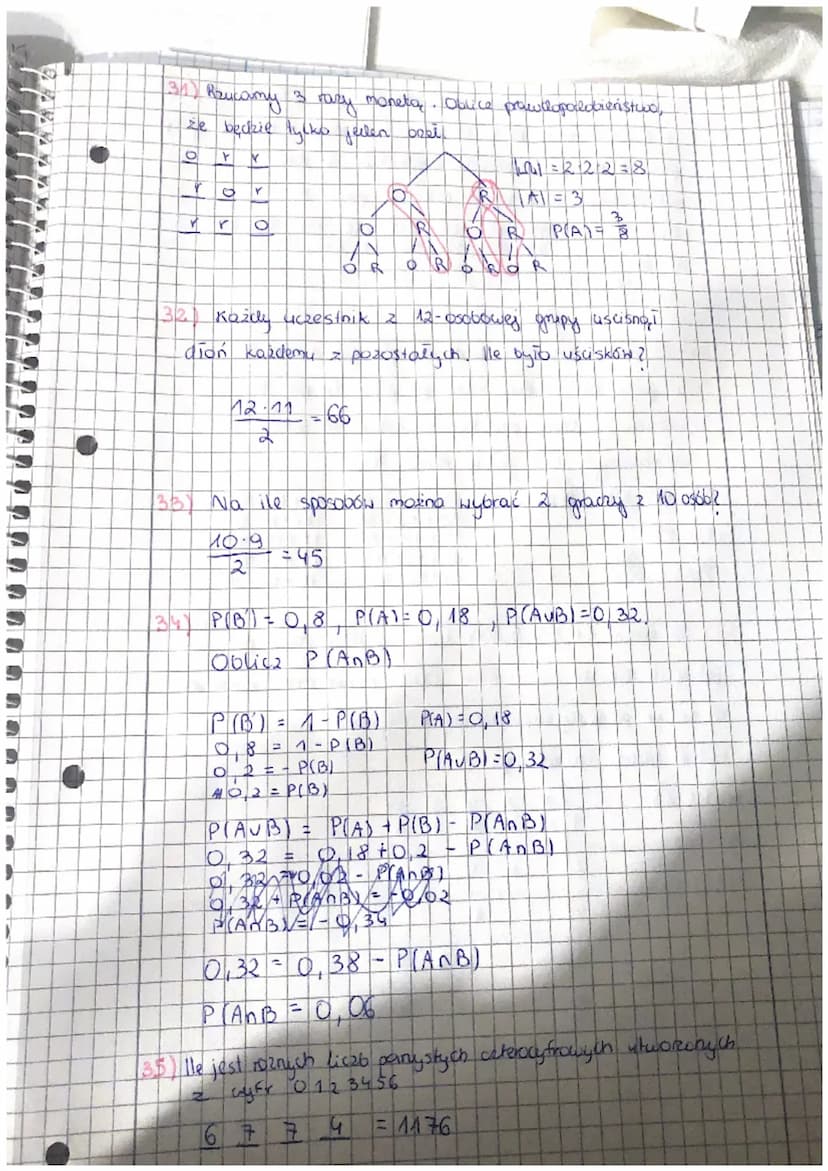 31) Rzucamy 3 razy monetą. Oblicz prawdopodobieństwo,
że będzie tylko jeden orzeł.
O r r
r O r
r r O
|Ω| = 2·2·2 = 8
|A| = 3
P(A) = 3/8
O R
O R O R
O R O R O R O R
32) Każdy uczestnik z 12-osobowej grupy uścisnął
dłoń każdemu z pozostałych. Ile było uścisków?
12·11/2 = 66
33) Na ile sposobów można wybrać 2 graczy z 10 osób?
10·9/2 = 45
34) P(B') = 0,8, P(A) = 0,18, P(A∪B) = 0,32.
Oblicz P(A∩B)
P(B') = 1 - P(B) P(A) = 0,18
0,8 = 1 - P(B)
0,2 = - P(B) P(A∪B) = 0,32
0,2 = P(B)
P(A∪B) = P(A) + P(B) - P(A∩B)
0,32 = 0,18 + 0,2 - P(A∩B)
0,32 = 0,02 - P(A∩B)
0,32 + P(A∩B) = -0,02
P(A∩B) = - 0,34
0,32 = 0,38 - P(A∩B)
P(A∩B = 0,06
35) Ile jest różnych liczb parzystych czterocyfrowych utworzonych
z cyfr 0 1 2 3 4 5 6
6 7 7 4 = 1176